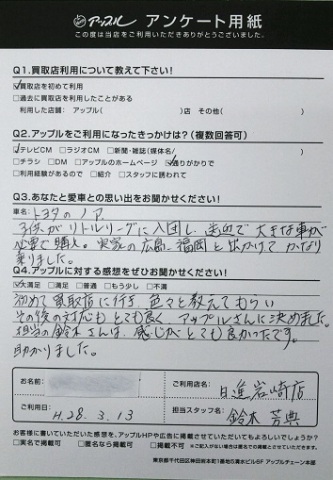 アップル アンケート用紙
この度は当店をご利用いただきありがとうございました。
Q1.買取店利用について教えて下さい!
☑買取店を初めて利用
□過去に買取店を利用したことがある
利用した店舗: アップル( )店 その他( )
Q2.アップルをご利用になったきっかけは?(複数回答可)
☑テレビCM □ラジオCM □新聞・雑誌(媒体名/ )
□チラシ □DM □アップルのホームページ ☑通りがかりで
□利用経験があるので □紹介 □スタッフに誘われて
Q3.あなたと愛車との思い出をお聞かせください!
車名: トヨタのノア
子供がリトルリーグに入団し、送迎で大きな車が
必要で購入。実家の広島、福岡と出かけてかなり
乗りました。
Q4.アップルに対する感想をぜひお聞かせください!
☑大満足 □満足 □普通 □もう少し □不満
初めて買取店に行き色々と教えてもらい
その後の対応もとても良く アップルさんに決めました。
担当の鈴木さんは、感じがとても良かったです。
助かりました。
お名前:
ご利用店名: 日進岩崎店
ご利用日: H.28.3.13
担当スタッフ名: 鈴木芳典
お客様に書いていただいた感想を、アップルHPや広告に掲載させていただいてもよろしいでしょうか?
□実名で掲載可 □匿名なら掲載可 □掲載不可 ※ご記入がない場合は匿名での掲載とさせていただきます
東京都千代田区神田須本町1番地5清水ビル5F アップルチェーン本部